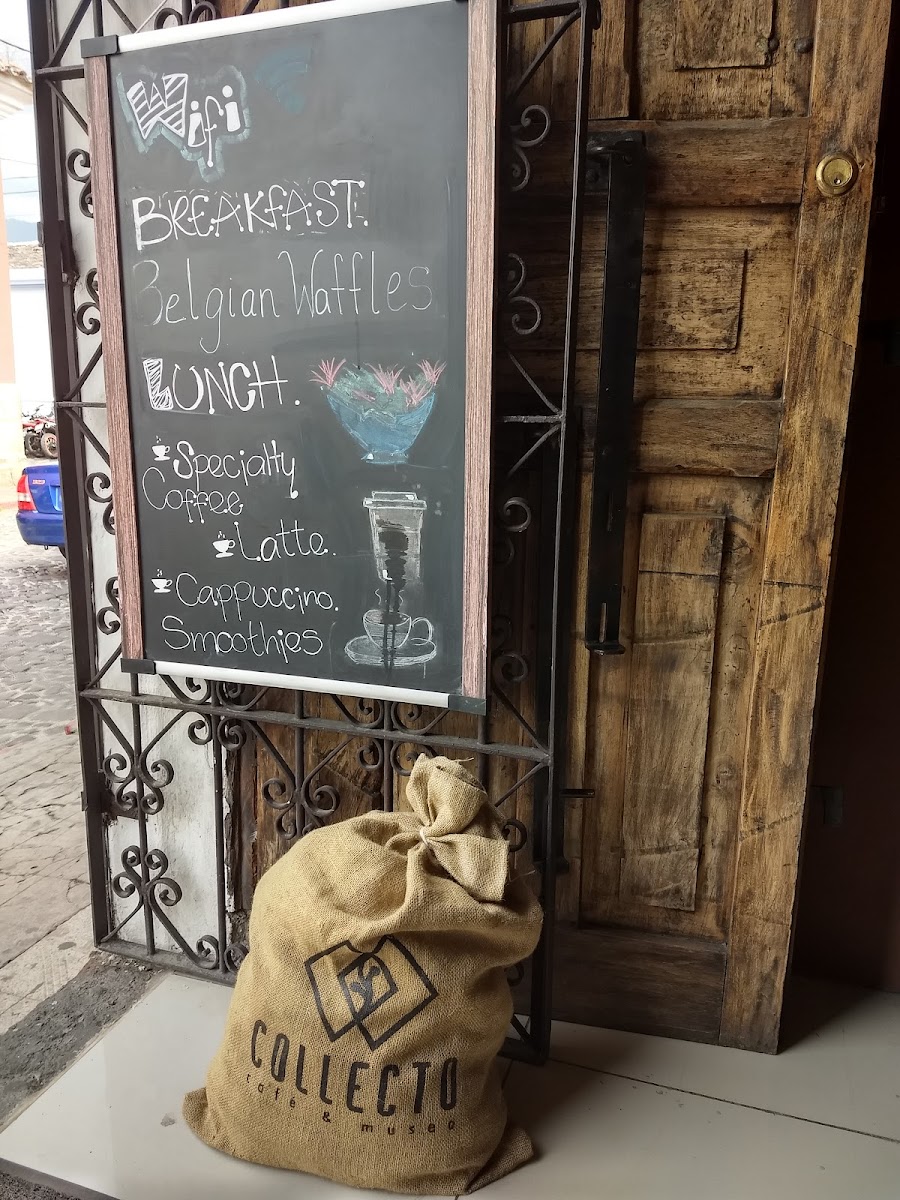 Wifi
BREAKFAST.
Belgian Waffles
LUNCH.
Specialty
Coffee
Latte.
Cappuccino.
Smoothies
COLLECTO
café & museo